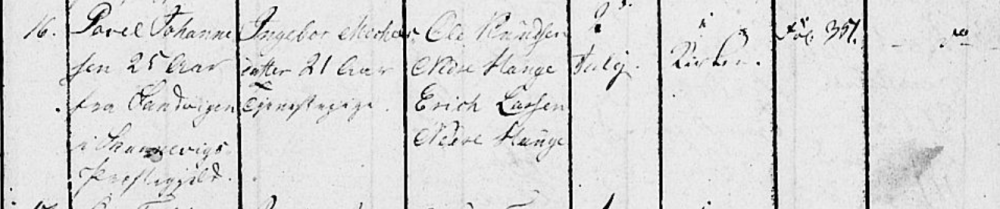 16. Povel Johanne
sen 25 Aar
fra Sandvigen
i Skonnevigs
Præstegjeld.
Ingebor Michels
datter 21 Aar
tjenestepige.
Ole Knudsen
Nedre Hauge
Erich Larsen
Nedre Hauge
2d
July.
i
Kirken.
Fol. 357.